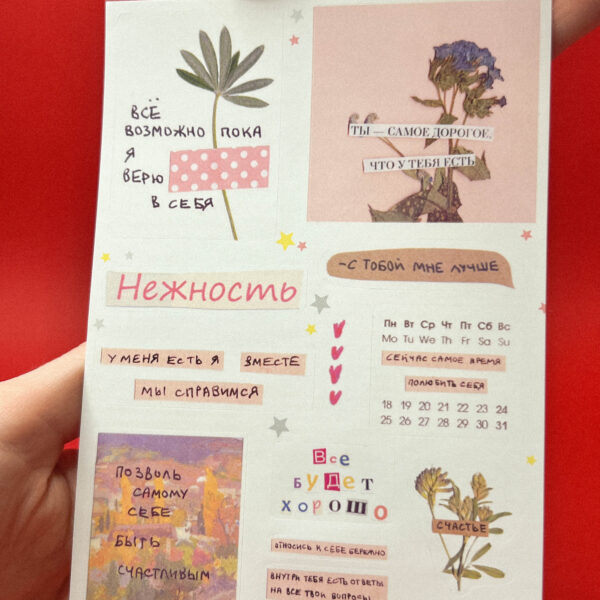 ВСЁ
ВОЗМОЖНО ПОКА
Я
ВЕРЮ
В СЕБЯ
ТЫ — САМОЕ ДОРОГОЕ,
ЧТО У ТЕБЯ ЕСТЬ
НЕЖНОСТЬ
-С ТОБОЙ МНЕ ЛУЧШЕ
У МЕНЯ ЕСТЬ Я ВМЕСТЕ
МЫ СПРАВИМСЯ
Пн Вт Ср Чт Пт Сб Вс
Mo Tu We Th Fr Sa Su
СЕЙЧАС САМОЕ ВРЕМЯ
ПОЛЮБИТЬ СЕБЯ
18 19 20 21 22 23 24
25 26 27 28 29 30 31
ПОЗВОЛЬ
САМОМУ
СЕБЕ
БЫТЬ
СЧАСТЛИВЫМ
Все
будет
хорошо
ОТНОСИСЬ К СЕБЕ БЕРЕЖНО
ВНУТРИ ТЕБЯ ЕСТЬ ОТВЕТЫ
НА ВСЕ ТВОИ ВОПРОСЫ
СЧАСТЬЕ